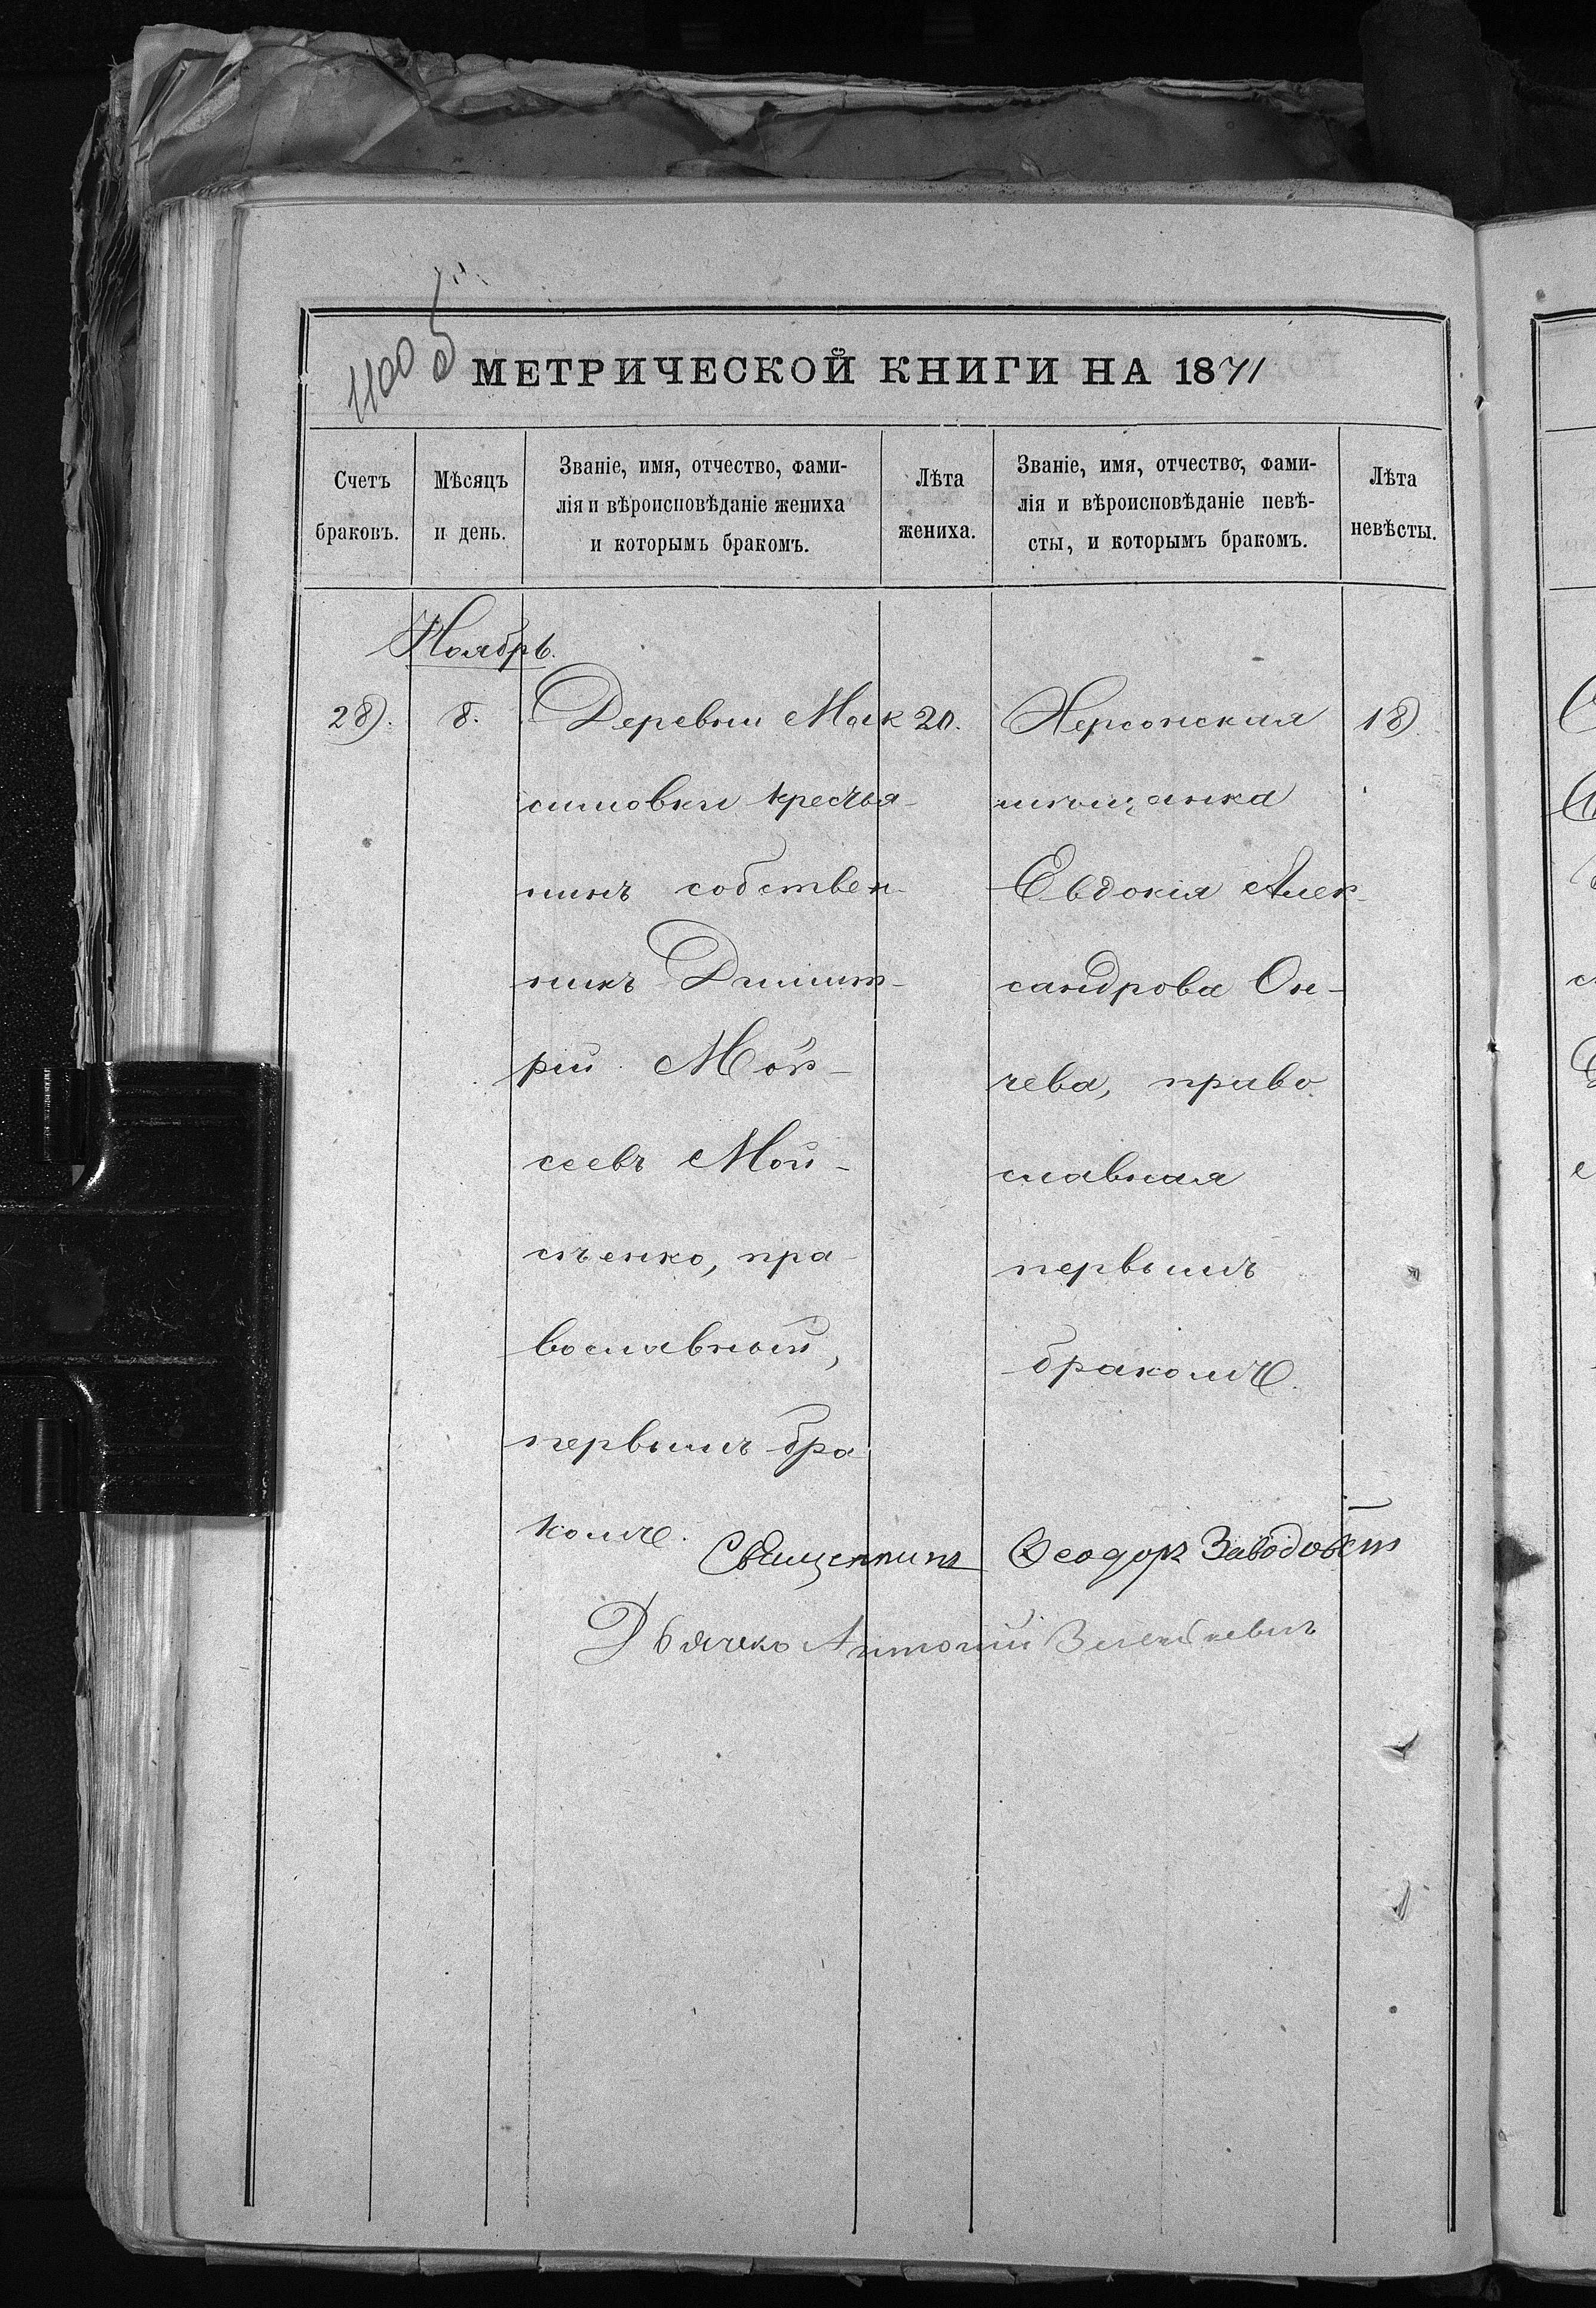 1100 об
МЕТРИЧЕСКОЙ КНИГИ НА 1871
Счетъ браковъ.
Мѣсяцъ и день.
Званіе, имя, отчество, фами-
лія и вѣроисповѣданіе жениха
и которымъ бракомъ.
Лѣта жениха.
Званіе, имя, отчество, фами-
лія и вѣроисповѣданіе невѣ-
сты, и которымъ бракомъ.
Лѣта невѣсты.
Ноябрь.
28).
8.
Деревни Мак
симовки крестья-
нинъ собствен-
никъ Димит-
рій Мои-
сеевъ Мои-
сѣенко, пра
вославный,
первымъ бра
комъ.
20.
Херсонская
мѣщанка
Евдокія Алек-
сандрова Он-
чева, право
славная
первымъ
бракомъ.
18)
Священникъ Ѳеодоръ
Дьячекъ Антоній